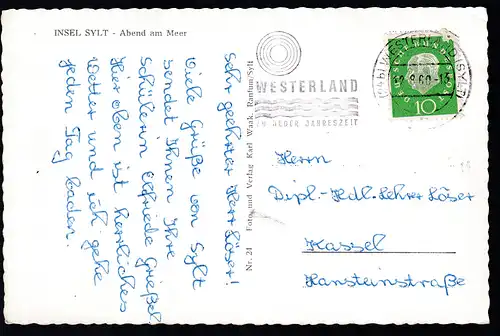 INSEL SYLT - Abend am Meer
Sehr geehrter Herr Löser!
Viele Grüße von Sylt
sendet Ihnen Ihre
Schülerin Elfriede Grießel.
Hier oben ist herrliches
Wetter und ich gehe
jeden Tag baden.
Nr. 24 Foto und Verlag Karl Waak, Rantum/Sylt
WESTERLAND
ZU JEDER JAHRESZEIT
WESTERLAND (SYLT)
8.60-15
10
Herrn
Dipl.-Hdl.-Lehrer Löser
Kassel
Hansteinstraße